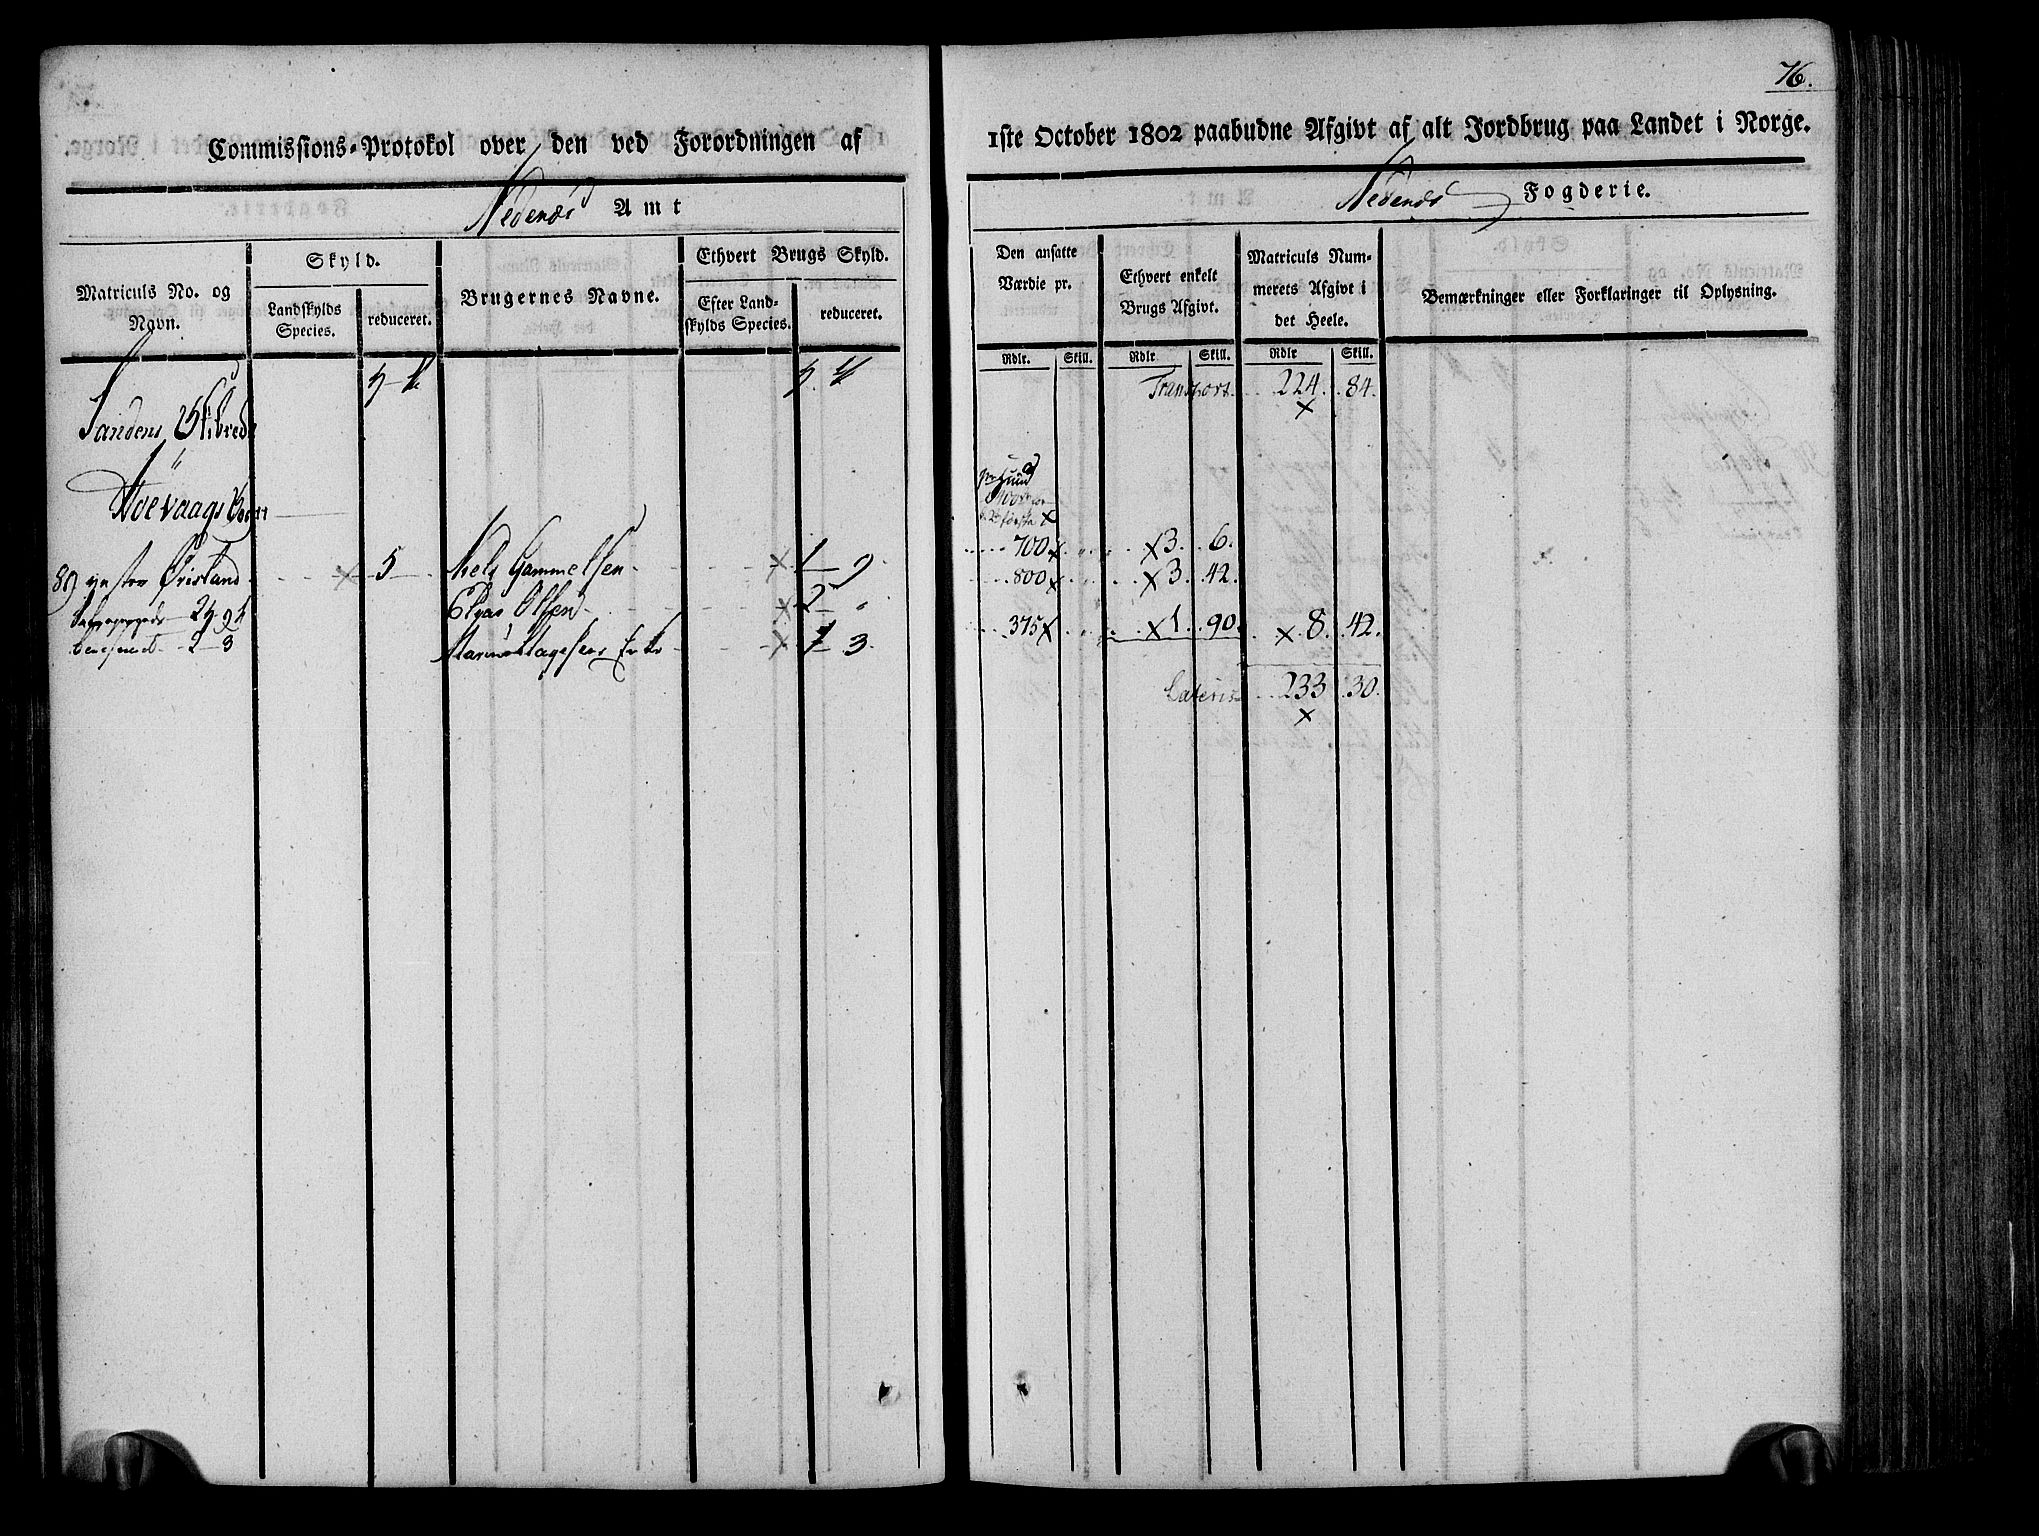 76.
Commissions-Protokol over den ved Forordningen af
1ste October 1802 paabudne Afgivt af alt Jordbrug paa Landet i Norge.
Nedenæs Amt
Nedenæs Fogderie.
Matriculs No. og Navn.
Skyld.
Landskylds Species.
reduceret.
Brugernes Navne.
Ethvert Brugs Skyld.
Efter Landskylds Species.
reduceret.
Den ansatte Værdie pr.
Ethvert enkelt Brugs Afgivt.
Matriculs Nummerets Afgivt i det Heele.
Bemærkninger eller Forklaringer til Oplysning.
Rdlr. Skill. Rdlr Skill. Rdlr Skill.
Transport 224 84.
Sandens Skibrede
Høevaags Sogn
89 ynstre Øvisland 5 Niels Gammelsen 1 700 3 6.
Elias Olsen 2 800 3 42.
1 3 375 1 90. 8 42.
Lateris 233 30.